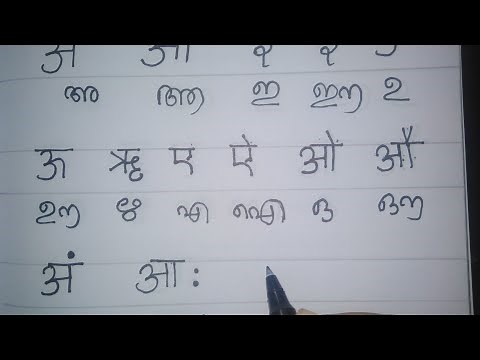 अ आ इ ई उ
അ ആ ഇ ഈ ഉ
ऊ ऋ ए ऐ ओ औ
ഊ ഋ എ ഐ ഒ ഔ
अं आ: